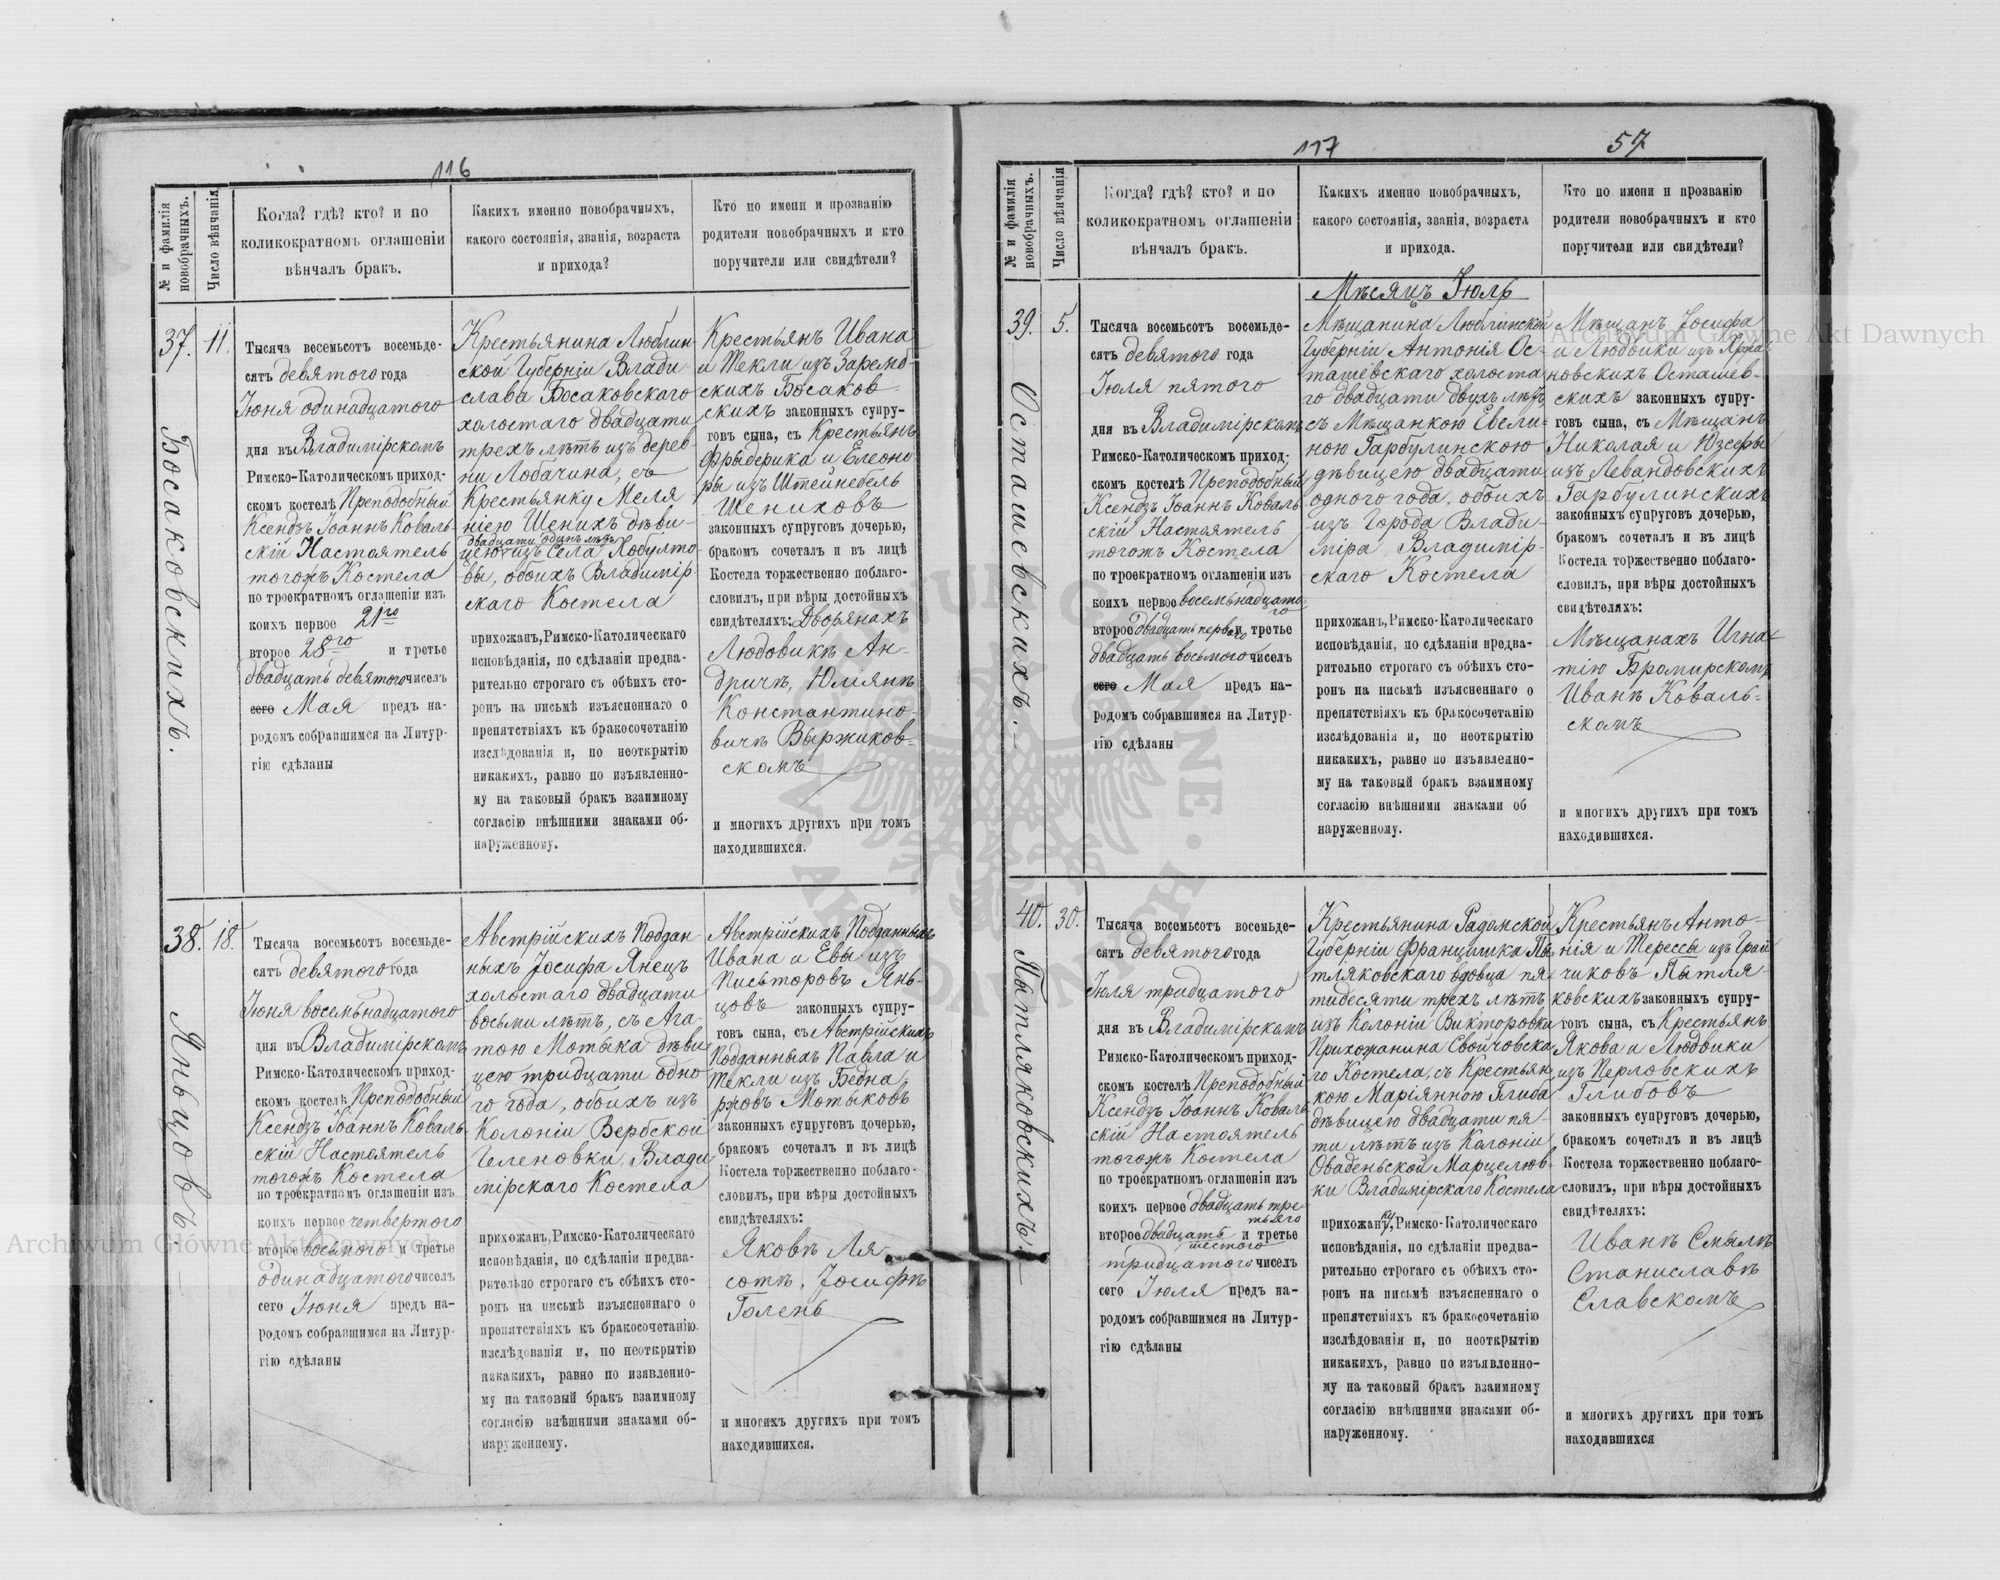 116
№ и фамилія новобрачныхъ.
Число вѣнчанія
Когда? гдѣ? кто? и по
коликократномъ оглашеніи
вѣнчалъ бракъ.
Какихъ именно новобрачныхъ,
какого состоянія, званія, возраста
и прихода?
Кто по имени и прозванію
родители новобрачныхъ и кто
поручители или свидѣтели?
37.
Босаковскихъ.
11.
Тысяча весемьсот восемьде-
сятъ девятого года
Іюня одинадцатого
дня въ Владимірскомъ
Римско-Католическомъ приход-
скомъ костелѣ Преподобный
Ксендзъ Іоаннъ Коваль-
скій Настоятель
тогожъ Костела
по троекратномъ оглашеніи изъ
коихъ первое 21го
второе 28го и третье
двадцать девятого чиселъ
сего Мая предъ на-
родомъ собравшимся на Литур-
гію сдѣланы
Крестьянина Люблин
ской Губерніи Влади
слава Босаковскаго
холостаго двадцати
трехъ лѣтъ изъ дерев-
ни Лобачина, съ
Крестьянку Меля
ніею Шенихъ дѣви-
двадцати одинъ лѣтъ
цею изъ Села Хобулто
вы, обоихъ Владимір
скаго Костела
прихожан, Римско-Католическаго
исповѣданія, по сдѣланіи предва-
рительно строгаго съ обѣихъ сто-
ронъ на письмѣ изъясненнаго о
препятствіяхъ къ бракосочетанію
изслѣдованія и, по неоткрытію
никакихъ, равно по изъявленно-
му на таковый бракъ взаимному
согласію внѣшними знаками об-
наруженному.
Крестьянъ Ивана
и Текли изъ Заремб-
скихъ Босаков-
скихъ законныхъ супру-
говъ сына, съ Крестьянъ
Фрыдерика и Елеоно
ры изъ Штейнебель
Шениховъ
законныхъ супруговъ дочерью,
бракомъ сочеталъ и въ лицѣ
Костела торжественно поблаго-
словилъ, при вѣры достойныхъ
свидѣтеляхъ: Дворянахъ
Людовикѣ Ан-
дричѣ, Юліянѣ
Константино-
вичѣ Выржиков-
скомъ
и многихъ другихъ при томъ
находившихся.
38.
Яньцовъ
18.
Тысяча восемьсотъ восемьде-
сятъ девятого года
Іюня восемьнадцатого
дня въ Владимірскомъ
Римско-Католическомъ приход-
скомъ костелѣ Преподобный
Ксендзъ Іоаннъ Коваль-
скій Настоятель
тогожъ Костела
по троекратномъ оглашеніи изъ
коихъ первое четвертого
второе восьмого и третье
одинадцатого чиселъ
сего Іюня предъ на-
родомъ собравшимся на Литур-
гію сдѣланы
Австрійскихъ Поддан-
ныхъ Іосифа Янецъ
холостаго двадцати
восьми лѣтъ, съ Ага-
тою Мотыка дѣви
цею тридцати одно
го года, обоихъ изъ
Колоніи Вербской
Геленовки, Влади
мірскаго Костела
прихожан, Римско-Католическаго
исповѣданія, по сдѣланіи предва-
рительно строгаго съ обѣихъ сто-
ронъ на письмѣ изъясненнаго о
препятствіяхъ къ бракосочетанію.
изслѣдованія и, по неоткрытію
никакихъ, равно по изявленно-
му на таковый бракъ взаимному
согласію внѣшними знаками об-
наруженнему.
Австрійскихъ Подданныхъ
Ивана и Евы изъ
Письторовъ Янь-
цовъ законныхъ супру-
говъ сына, съ Австрійскихъ
Подданныхъ Павла и
Текли изъ Бедна
ржовъ Мотыковъ
законныхъ супруговъ дочерью,
бракомъ сочеталъ и въ лицѣ
Костела торжественно поблаго-
словилъ, при вѣры достойныхъ
свидѣтеляхъ:
Яковѣ Ля
сотѣ, Іосифѣ
Голень
и многихъ другихъ при томъ
находившихся.
117
57
№ и фамилія новобрачныхъ.
Число вѣнчанія
Когда? гдѣ? кто? и по
коликократномъ оглашеніи
вѣнчалъ бракъ.
Какихъ именно новобрачныхъ,
какого состоянія, званія, возраста
и прихода.
Кто по имени и прозванію
родители новобрачныхъ и кто
поручители или свидѣтели?
Мѣсяцъ Іюль
39.
Осташевскихъ.
5.
Тысяча восемьсот восемьде-
сятъ девятого года
Іюля пятого
дня въ Владимірскомъ
Римско-Католическомъ приход-
скомъ костелѣ Преподобный
Ксендзъ Іоаннъ Коваль
скій Настоятель
тогожъ Костела
по троекратномъ оглашеніи изъ
коихъ первое восемьнадцато-
го
второе двадцать перваго и третье
двадцать восьмого чиселъ
сего Мая предъ на-
родомъ собравшимся на Литур-
гію сдѣланы
Мѣщанина Люблинской
Губерніи Антонія Ос-
ташевскаго холоста
го двадцати двухъ лѣтъ,
съ Мѣщанкою Евели-
ною Гарбулинскою
дѣвицею двадцати
одного года, обоихъ
изъ Города Влади-
міра, Владимір-
скаго Костела
прихожанъ, Римско-Католическаго
исповѣданія, по сдѣланіи предва-
рительно строгаго съ обѣихъ сто-
ронъ на письмѣ изъясненнаго о
препятствіяхъ къ бракосочетанію
изслѣдованія и, по неоткрытію
никакихъ, равно по изъявленно-
му на таковый бракъ взаимному
согласію внѣшними знаками об
наруженному.
Мѣщанъ Іосифа
и Людвики изъ
новскихъ Осташев-
скихъ законныхъ супру-
говъ сына, съ Мѣщанъ
Николая и Юзефы
изъ Левандовскихъ
Гарбулинскихъ
законныхъ супруговъ дочерью,
бракомъ сочеталъ и въ лицѣ
Костела торжественно поблаго-
словилъ, при вѣры достойныхъ
свидѣтеляхъ:
Мѣщанахъ Игна-
тію Бромирскомъ
Иванѣ Коваль-
скомъ
и многихъ другихъ при томъ
находившихся.
40.
Пытляковскихъ.
30.
Тысяча восемьсотъ восемьде-
сятъ девятого года
Іюля тридцатого
дня въ Владимірскомъ
Римско-Католическомъ приход-
скомъ костелѣ Преподобный
Ксендзъ Іоаннъ Коваль
скій Настоятель
тогожъ Костела
по троекратномъ оглашеніи изъ
коихъ первое двадцать тре-
тьяго
второе двадцать и третье
шестого
тридцатого чиселъ
сего Іюля предъ на-
родомъ собравшимся на Литур-
гію сдѣланы
Крестьянина Радомской
Губерніи Францишка Пы
тляковскаго вдовца пя
тидесяти трехъ лѣтъ
изъ Колоніи Викторовки
Прихожанина Свойчовска
го Костела, съ Крестьян
кою Маріянною Глиба
дѣвицею двадцати пя-
ти лѣтъ изъ Колоніи
Оваденьской Марцелюв
ки Владимірскаго Костела
прихожанку, Римско-Католическаго
исповѣданія, по сдѣланіи предва-
рительно строгаго съ обѣихъ сто-
ронъ на письмѣ изъясненнаго о
препятствіяхъ къ бракосочетанію
изслѣдованія и, по неоткрытію
никакихъ, равно по изъявленно-
му на таковый бракъ взаимному
согласію внѣшними знаками об-
наруженному.
Крестьянъ Анто-
нія и Терессы изъ Грай
чиковъ Пытля-
ковскихъ законныхъ супру-
говъ сына, съ Крестьянъ
Якова и Людвики
изъ Перловскихъ
Глибовъ
законныхъ супруговъ дочерью,
бракомъ сочеталъ и въ лицѣ
Костела торжественно поблаго-
словилъ, при вѣры достойныхъ
свидѣтеляхъ:
Иванѣ Смылѣ
Станиславѣ
Славскомъ
и многихъ другихъ при томъ
находившихся
Archiwum Główne Akt Dawnych
Archiwum Główne Akt Dawnych